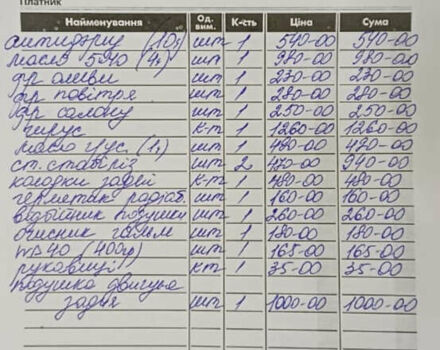 Платник
Найменування Од. вим. К-сть Ціна Сума
антифриз (10л) шт 1 540-00 540-00
масло 5W40 (4л) шт 1 980-00 980-00
фр оливи шт 1 230-00 230-00
фр повітря шт 1 280-00 280-00
фр салону шт 1 250-00 250-00
к-т 1 1260-00 1260-00
масло гус. (1л) шт 1 420-00 420-00
ст. стабіліз шт 2 470-00 940-00
колодки задні к-т 1 480-00 480-00
герметик радіат. шт 1 160-00 160-00
відбійник подушки шт 1 260-00 260-00
очисник гальм шт 1 180-00 180-00
WD40 (400гр) шт 1 165-00 165-00
рукавиці кт 1 35-00 35-00
подушка двигуна
задня шт 1 1000-00 1000-00